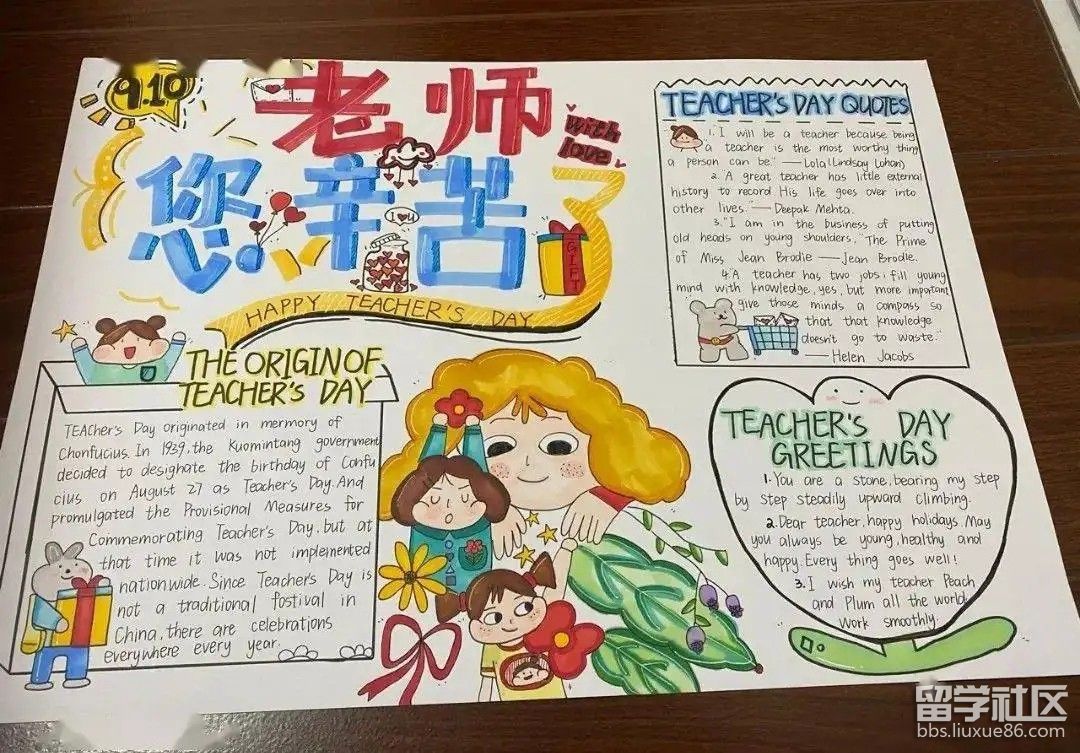 9.10
老师
with
love
您辛苦了
I U
GIFT
HAPPY TEACHER'S DAY
THE ORIGIN OF
TEACHER'S DAY
TEACher's Day originated in mermory of
Chonfucius. In 1939, the Kuomintang government
decided to designate the birthday of Confu
cius on August 27 as Teacher's Day. And
promulgated the Provisional Measures for
Commemorating Teacher's Day, but at
that time it was not implemented
nationwide. Since Teacher's Day is
not a traditional fostival in
China, there are celebrations
everywhere every year.
TEACHER'S DAY QUOTES
1. I will be a teacher because being
a teacher is the most worthy thing
a person can be." — Lola (Lindsay Lohan)
2. A great teacher has little external
history to record His life goes over into
other lives." — Deepak Mehta.
3. "I am in the business of putting
old heads on young shoulders, "The Prime
of Miss Jean Brodie — Jean Brodie.
4. A teacher has two jobs; fill young
mind with knowledge, yes, but more important
give those minds a compass so
that that knowledge
doesn't go to waste."
— Helen Jacobs
TEACHER'S DAY
GREETINGS
1. You are a stone, bearing my step
by step steadily upward climbing.
2. Dear teacher, happy holidays. May
you always be young, healthy and
happy. Every thing goes well!
3. I wish my teacher Peach
and Plum all the world,
work smoothly.
留学社区
bbs.liuxue86.com